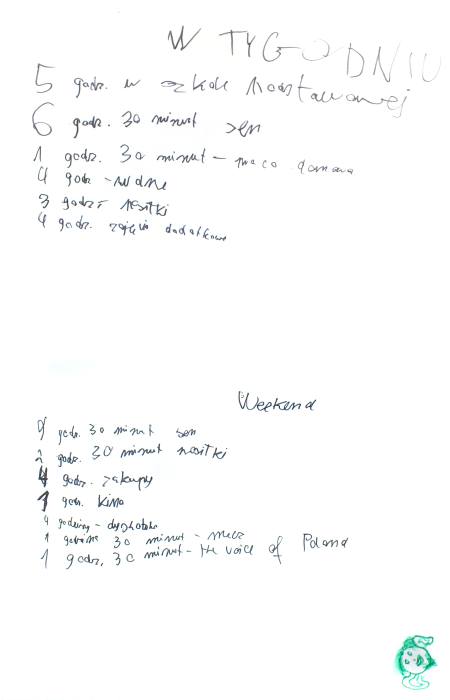 W TYGODNIU
5 godz. w szkole podstawowej
6 godz. 30 minut sen
1 godz. 30 minut - praca domowa
4 godz -
3 godz. posiłki
4 godz. zajęcia dodatkowe
Weekend
9 godz. 30 minut sen
2 godz. 30 minut posiłki
4 godz. zakupy
1 godz. kino
4 godziny - dyskoteka
1 godzina 30 minut - mecz
1 godz. 30 minut - the voice of Poland